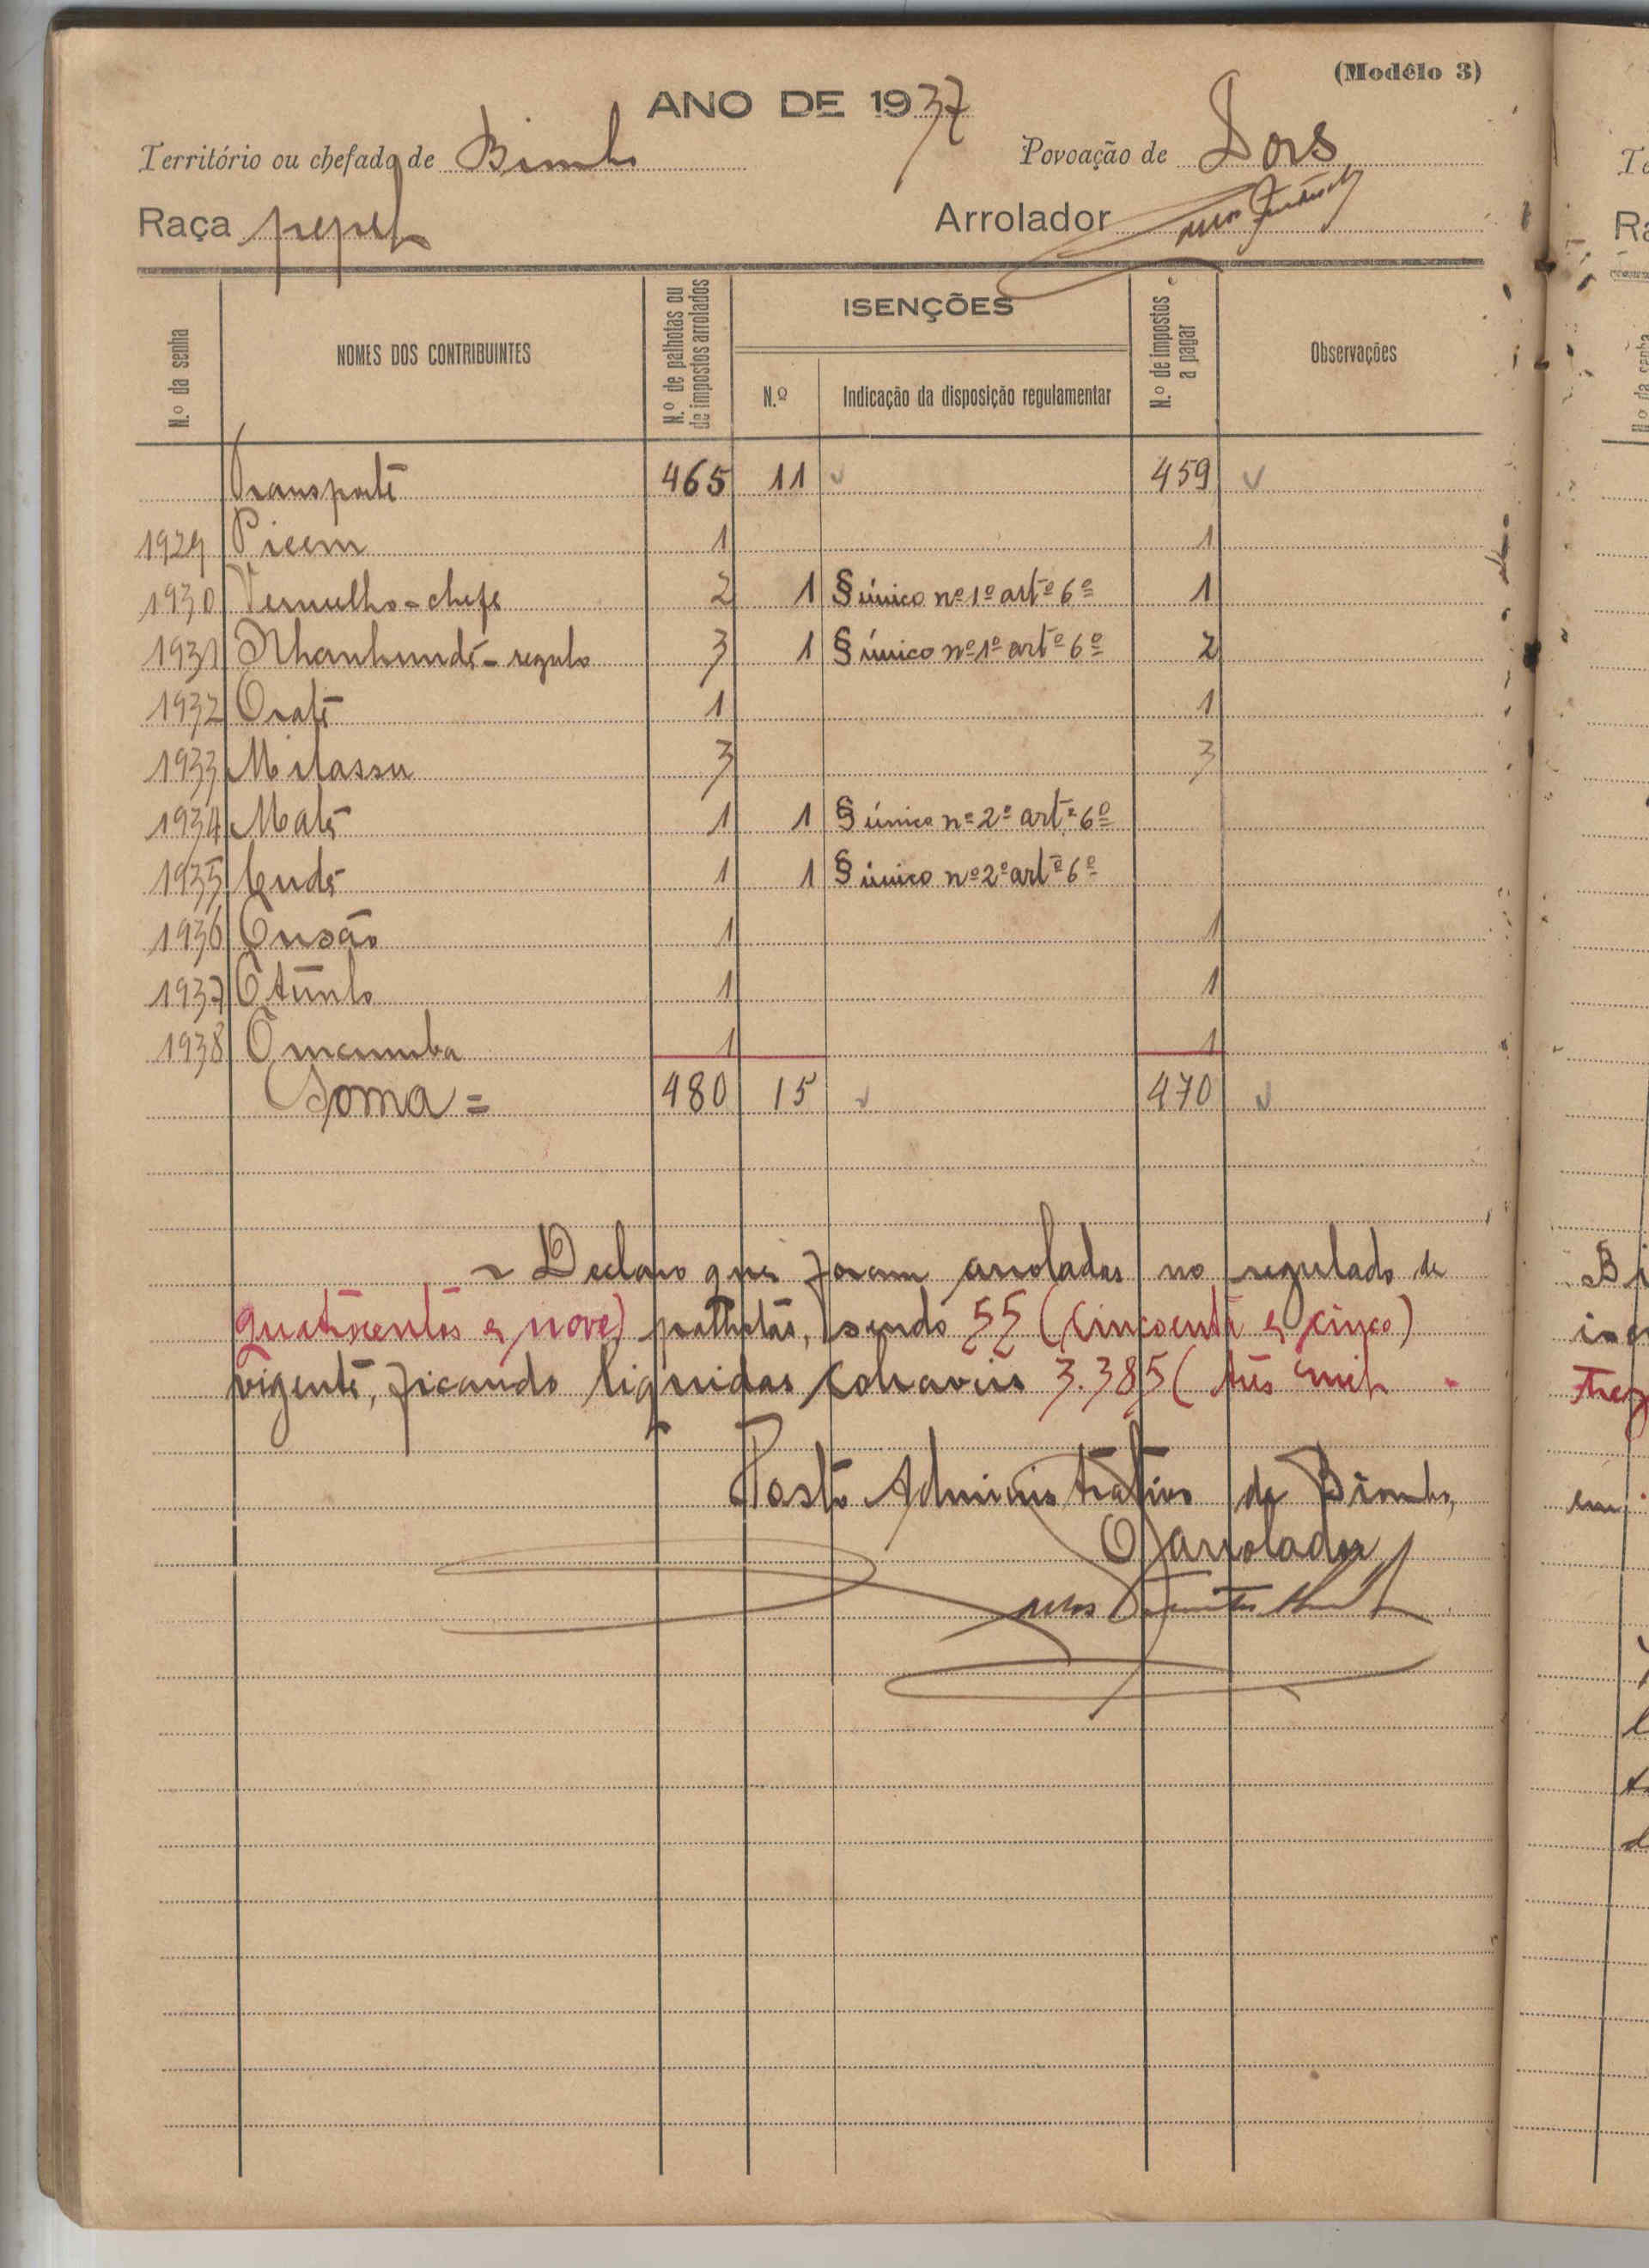 (Modêlo 3)
ANO DE 1937
Território ou chefado de Biombo Povoação de Dors
Raça papel Arrolador
N.º da senha NOMES DOS CONTRIBUINTES N.º de palhotas ou de impostos arrolados ISENÇÕES N.º de impostos a pagar Observações
N.º Indicação da disposição regulamentar
Transporte 465 11 459
1929 Picem 1 1
1930 Vermelho-chefe 2 1 § único nº 1º artº 6º 1
1931 Nhanhundé-regulo 3 1 § único nº 1º artº 6º 2
1932 Oraté 1 1
1933 Milassu 3 3
1934 Malé 1 1 § único nº 2º artº 6º
1935 1 1 § único nº 2º artº 6º
1936 1 1
1937 1 1
1938 Omcumba 1 1
Soma = 480 15 470
Declaro que foram arroladas no regulado de
quatrocentos e nove) palhotas, sendo 55 (cincoenta e cinco)
vigente, ficando liquidas cobraveis 3.385 (três mil
Posto Administrativo de Biombo,
O arrolador
Bi
em